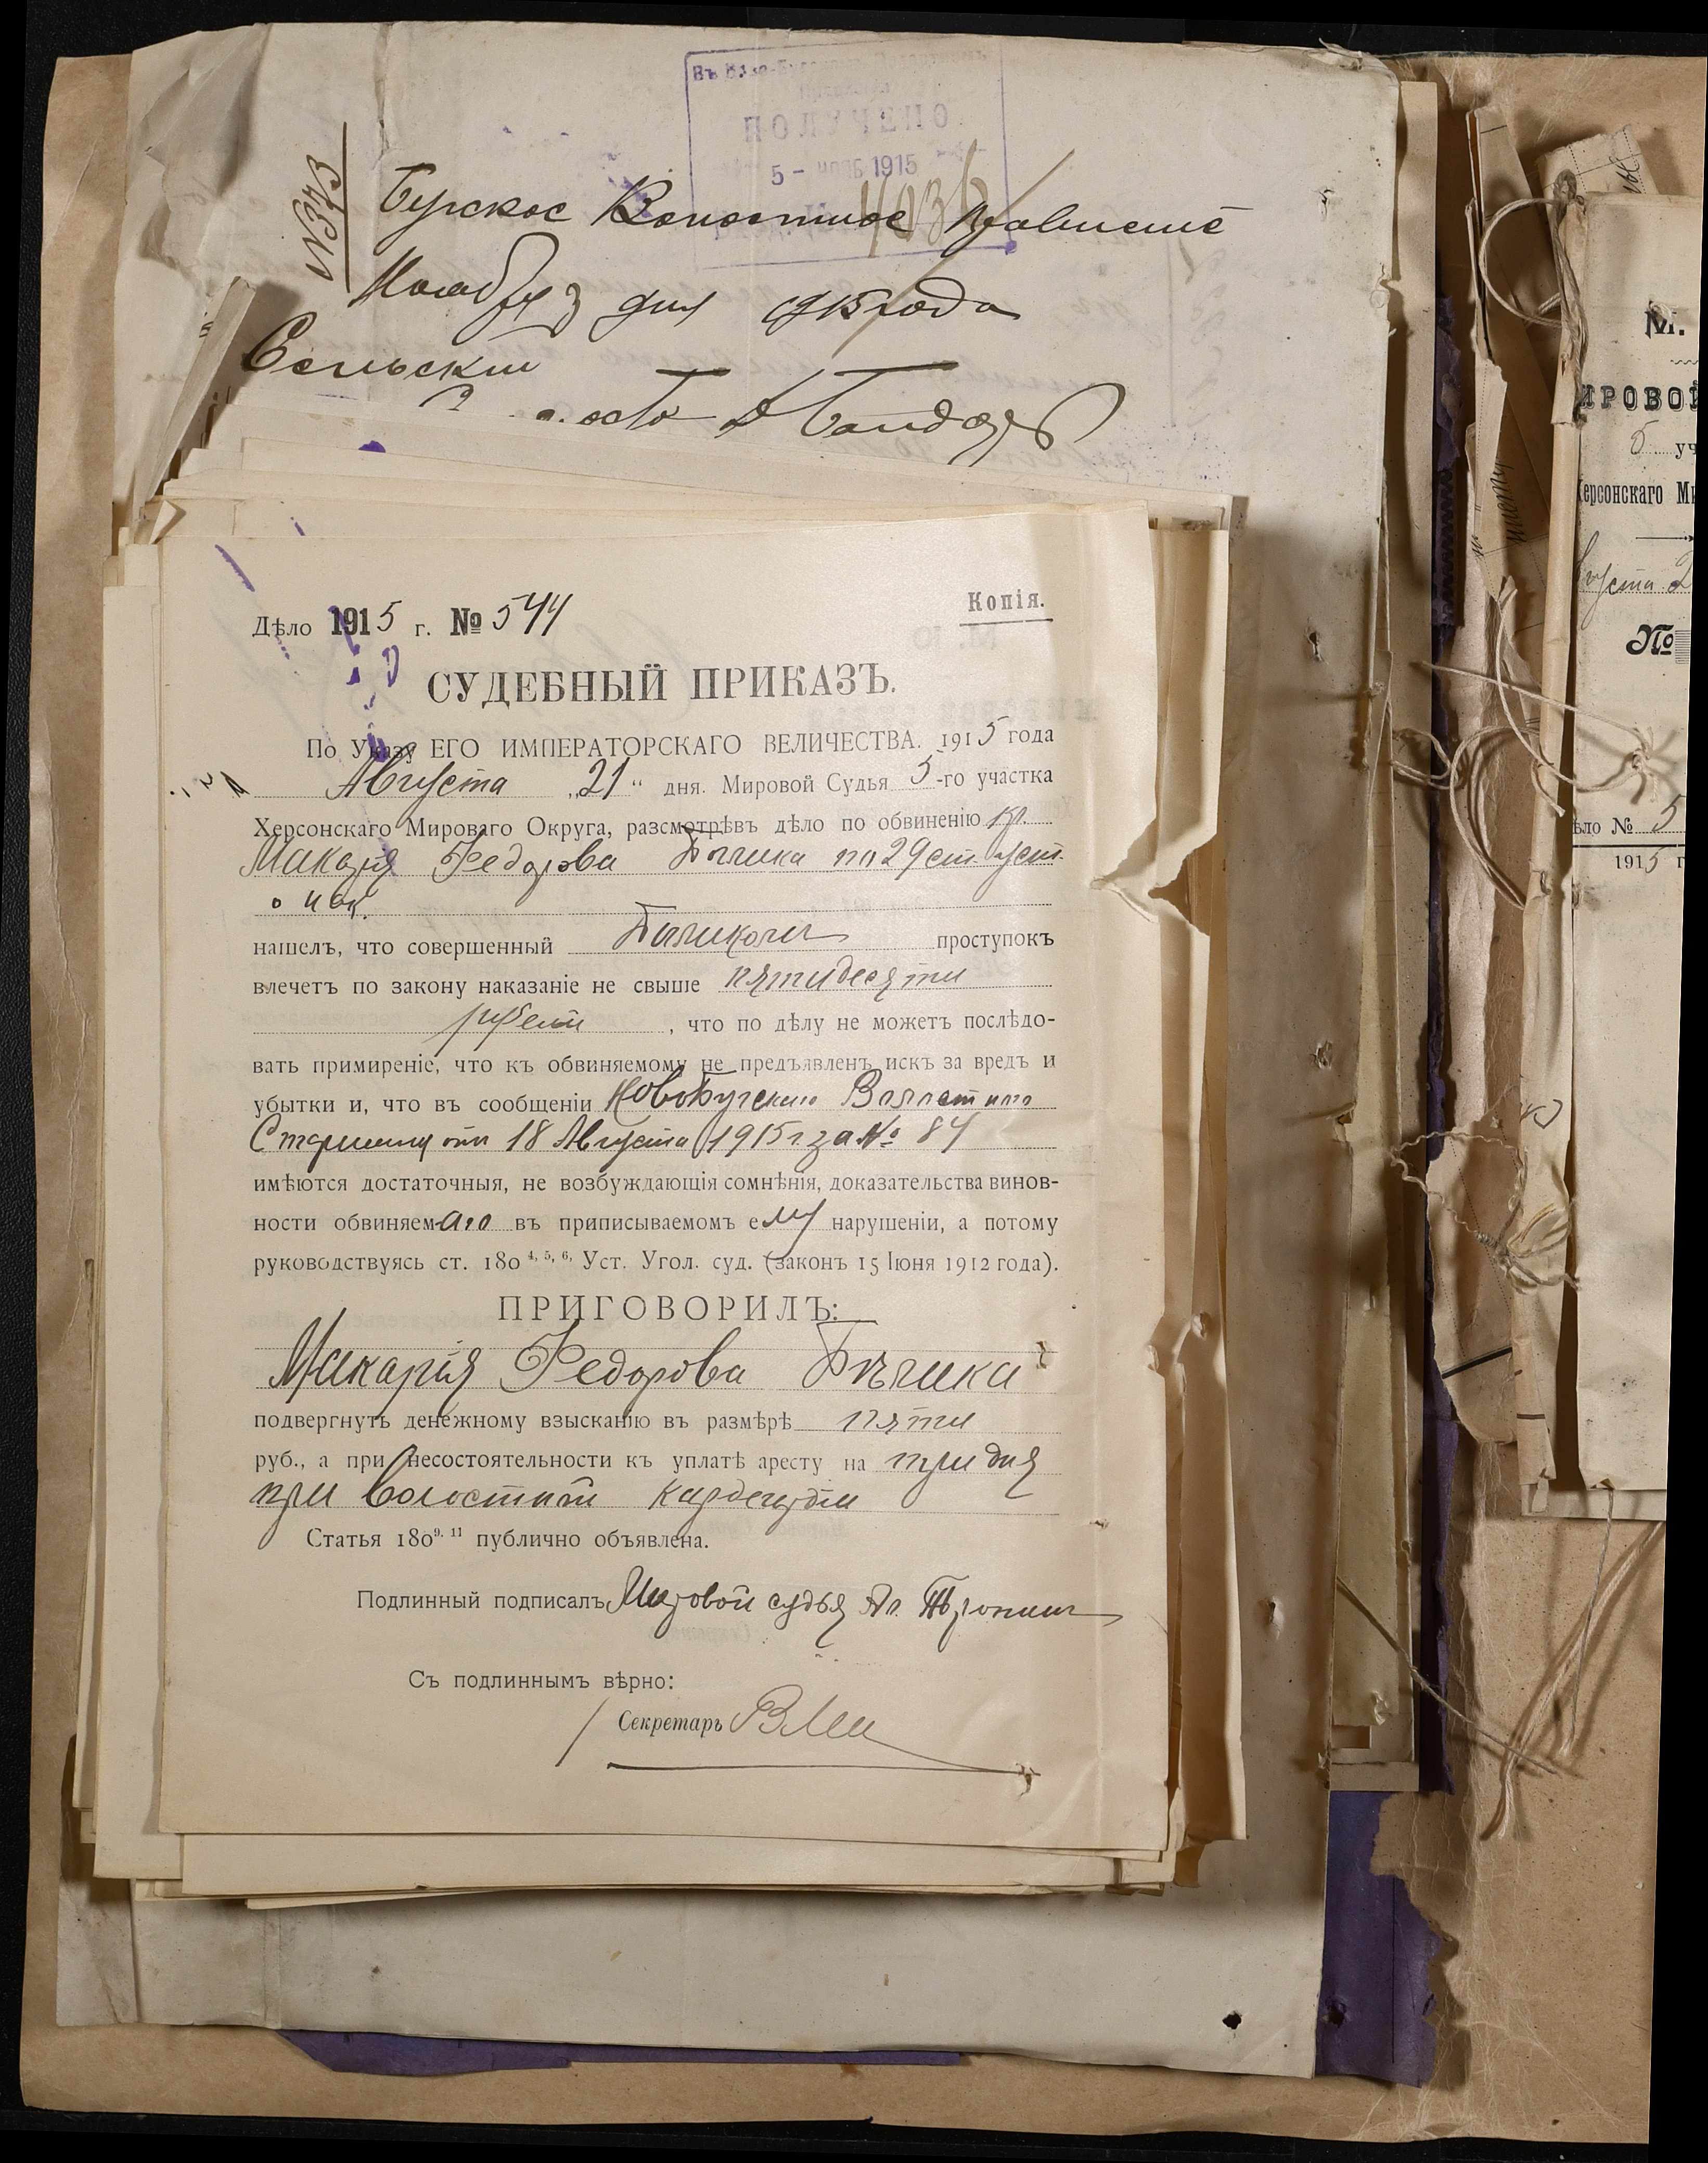 Въ
ПОЛУЧЕНО
5 - нояб 1915
№ 373
Бугское Волостное Правленіе
Ноября 3 дня 1915 года
Сельскій
Копія.
Дѣло 1915 г. № 544
СУДЕБНЫЙ ПРИКАЗЪ.
По Указу ЕГО ИМПЕРАТОРСКАГО ВЕЛИЧЕСТВА. 1915 года
Августа „21“ дня. Мировой Судья 5-го участка
Херсонскаго Мироваго Округа, разсмотрѣвъ дѣло по обвиненію кр.
Макарія Федорова Бычика по 29 ст. уст.
о нак.
нашелъ, что совершенный проступокъ
влечетъ по закону наказаніе не свыше пятидесяти
рублей, что по дѣлу не можетъ послѣдо-
вать примиреніе, что къ обвиняемому не предъявленъ искъ за вредъ и
убытки и, что въ сообщеніи Новобугскаго Волостного
Старшины отъ 18 Августа 1915 г. за № 84
имѣются достаточныя, не возбуждающія сомнѣнія, доказательства винов-
ности обвиняемаго въ приписываемомъ ему нарушеніи, а потому
руководствуясь ст. 180 4, 5, 6, Уст. Угол. суд. (законъ 15 Іюня 1912 года).
ПРИГОВОРИЛЪ:
Макарія Федорова Бычика
подвергнуть денежному взысканію въ размѣрѣ пяти
руб., а при несостоятельности къ уплатѣ аресту на три дня
при волостной кардегардіи
Статья 180 9. 11 публично объявлена.
Подлинный подписалъ Мировой судья
Съ подлиннымъ вѣрно:
Секретарь
М.
ИРОВОЙ
5 уч
Херсонскаго Ми
Августа 2
№
ѣло № 5
1915 г